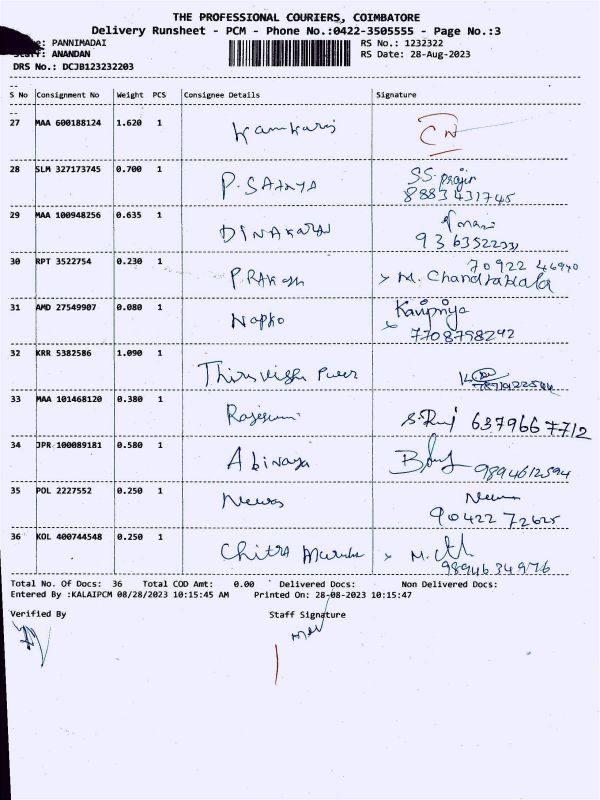 THE PROFESSIONAL COURIERS, COIMBATORE
Delivery Runsheet - PCM - Phone No.:0422-3505555 - Page No.:3
: PANNIMADAI RS No.: 1232322
Staff: ANANDAN RS Date: 28-Aug-2023
DRS No.: DCJB123232203
--
S No Consignment No Weight PCS Consignee Details Signature
--
27 MAA 600188124 1.620 1 CN
28 SLM 327173745 0.700 1 P.SATHYA SS.prajin
8883431745
29 MAA 100948256 0.635 1 DINAKARAN
30 RPT 3522754 0.230 1 PRAKASH 70922 46970
M. Chandrakala
31 AMD 27549907 0.080 1 Hopko Kavipriya
7708798242
32 KRR 5382586 1.090 1
33 MAA 101468120 0.380 1 S.Raj 6379667712
34 JPR 100089181 0.580 1 Abinaya 9894612594
35 POL 2227552 0.250 1 90422 72625
36 KOL 400744548 0.250 1 Chitra 9894634976
Total No. Of Docs: 36 Total COD Amt: 0.00 Delivered Docs: Non Delivered Docs:
Entered By :KALAIPCM 08/28/2023 10:15:45 AM Printed On: 28-08-2023 10:15:47
Verified By Staff Signature